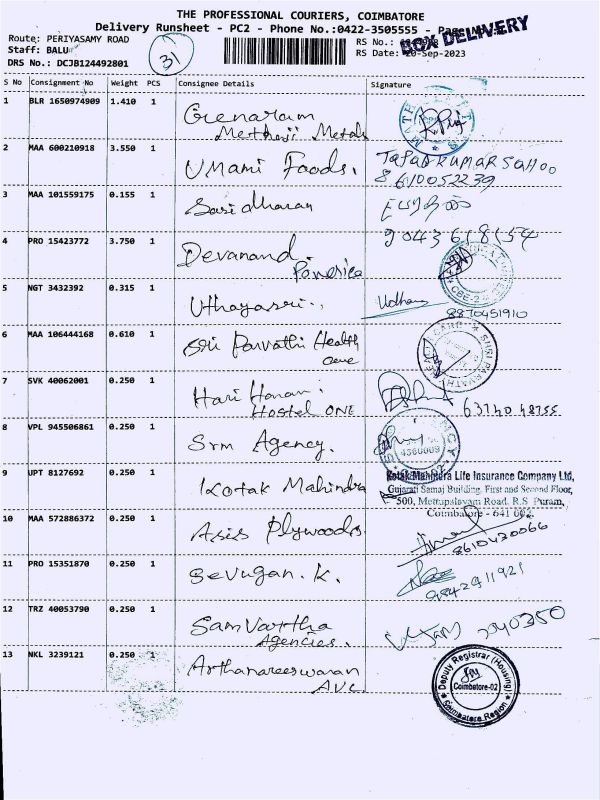 THE PROFESSIONAL COURIERS, COIMBATORE
Delivery Runsheet - PC2 - Phone No.:0422-3505555 -
BOX DELIVERY
Route: PERIYASAMY ROAD
Staff: BALU
DRS No.: DCJB124492801
31
RS No.:
RS Date: 20-Sep-2023
S No Consignment No Weight PCS Consignee Details Signature
1 BLR 1650974909 1.410 1 Genaram
Metherji Metals
2 MAA 600210918 3.550 1 Umami Foods. TAPAN KUMAR SAHOO
8610052239
3 MAA 101559175 0.155 1 Sasidharan
9043618154
4 PRO 15423772 3.750 1 Devanand
CBE-2
5 NGT 3432392 0.315 1 Uthayasri.. Udhaya
8870451910
6 MAA 106444168 0.610 1 Sri Parvathi Health
Care
SHRI PARVATHI
7 SVK 40062001 0.250 1 Hari Haran
Hostel ONE
63740 48755
8 VPL 945506861 0.250 1 Srm Agency.
4360009
9 UPT 8127692 0.250 1 Kotak Mahindra
Kotak Mahindra Life Insurance Company Ltd,
Gujarati Samaj Building, First and Second Floor,
500, Mettupalayam Road, R.S. Puram,
Coimbatore - 641 002.
10 MAA 572886372 0.250 1 Asis Plywoods
8610430066
11 PRO 15351870 0.250 1 Sevugan.K.
9842911921
12 TRZ 40053790 0.250 1 Samvartha
Agencies.
2240350
13 NKL 3239121 0.250 1 Arthanareeswaran
AVL
Deputy Registrar (Housing)
Coimbatore-02
Coimbatore Region